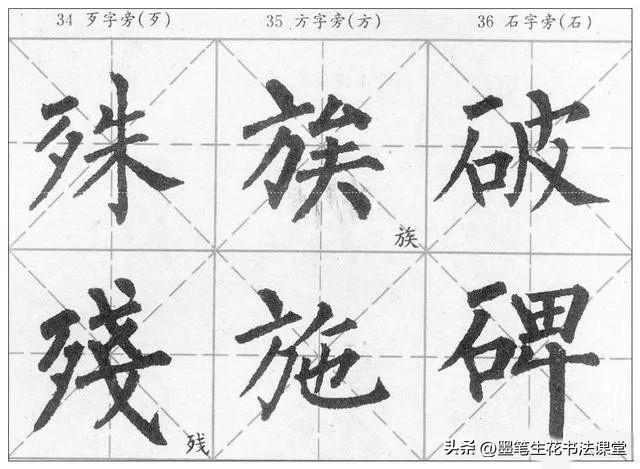 34 歹字旁(歹) 35 方字旁(方) 36 石字旁(石)
殊 族 破
族
殘 施 碑
残
头条 @墨笔生花书法课堂